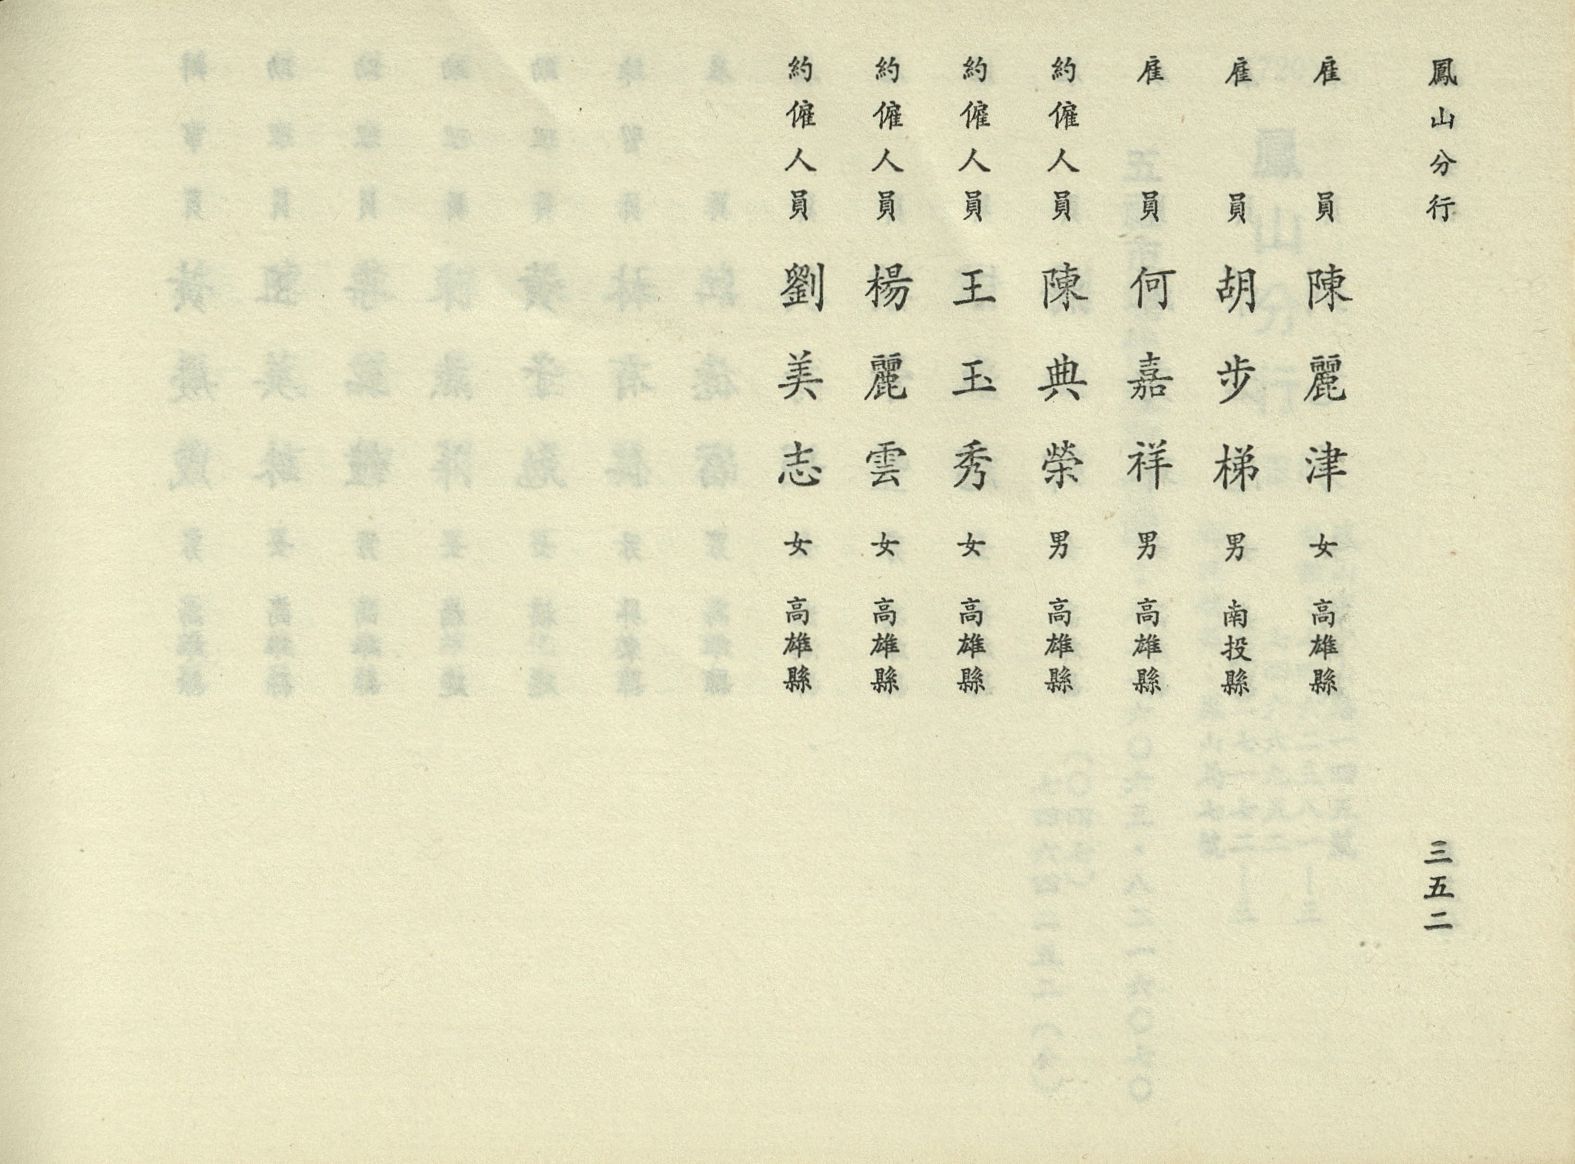 鳳山分行
雇員 陳麗津 女 高雄縣
雇員 胡步梯 男 南投縣
雇員 何嘉祥 男 高雄縣
約僱人員 陳典榮 男 高雄縣
約僱人員 王玉秀 女 高雄縣
約僱人員 楊麗雲 女 高雄縣
約僱人員 劉美志 女 高雄縣
三五二